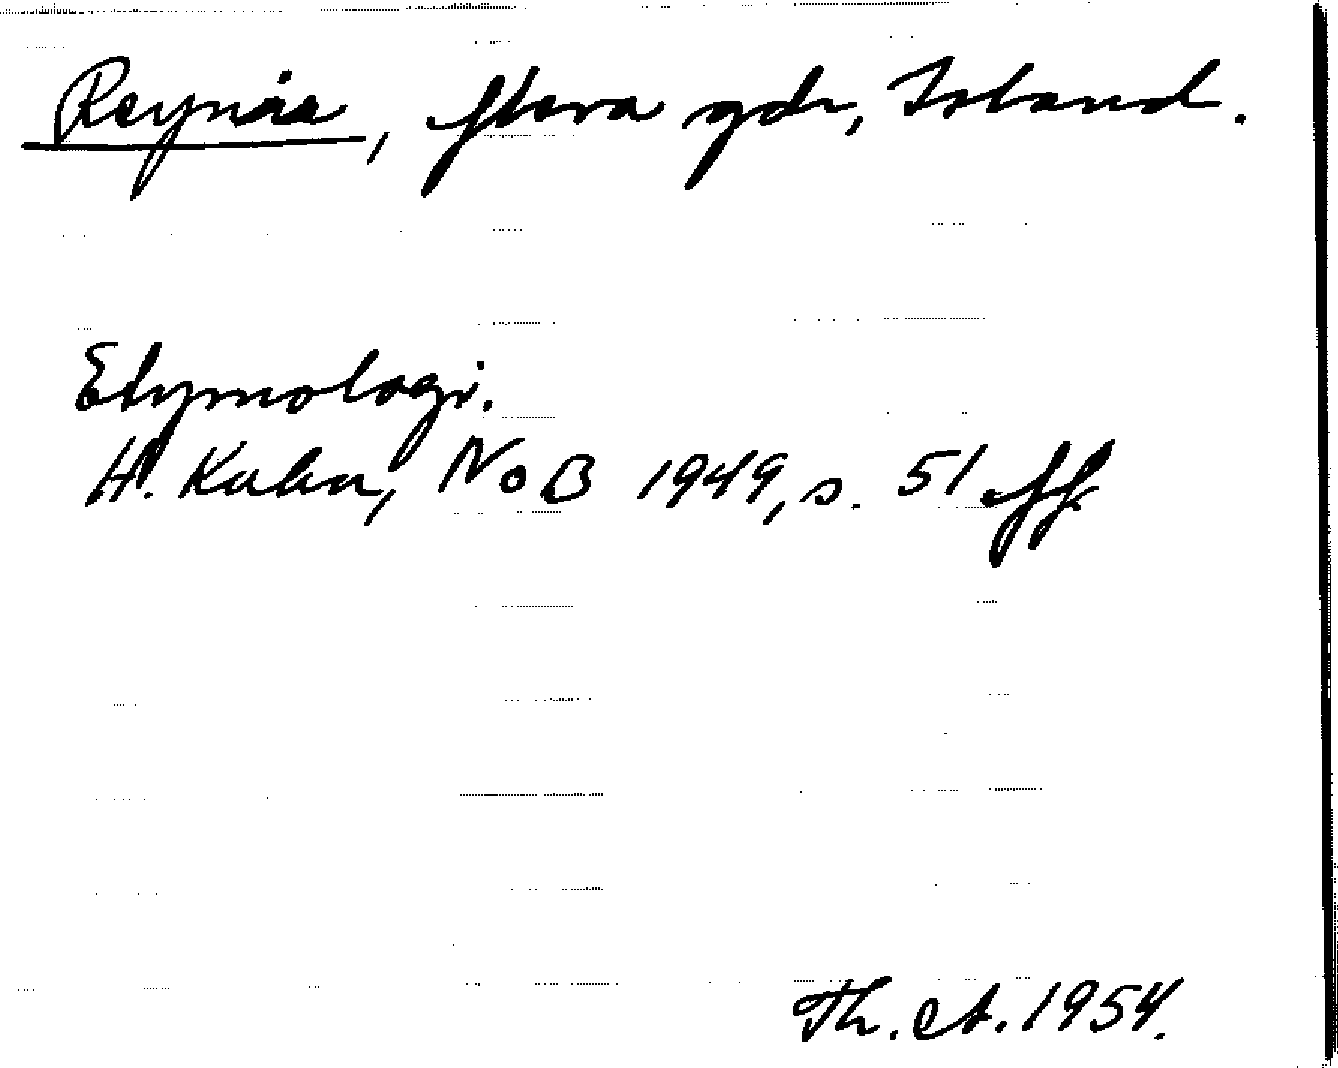 Reynåa, flera gdr, Island.
Etymologi.
H. Kuhn, NoB 1949, s. 51 ff.
Th. A. 1954.